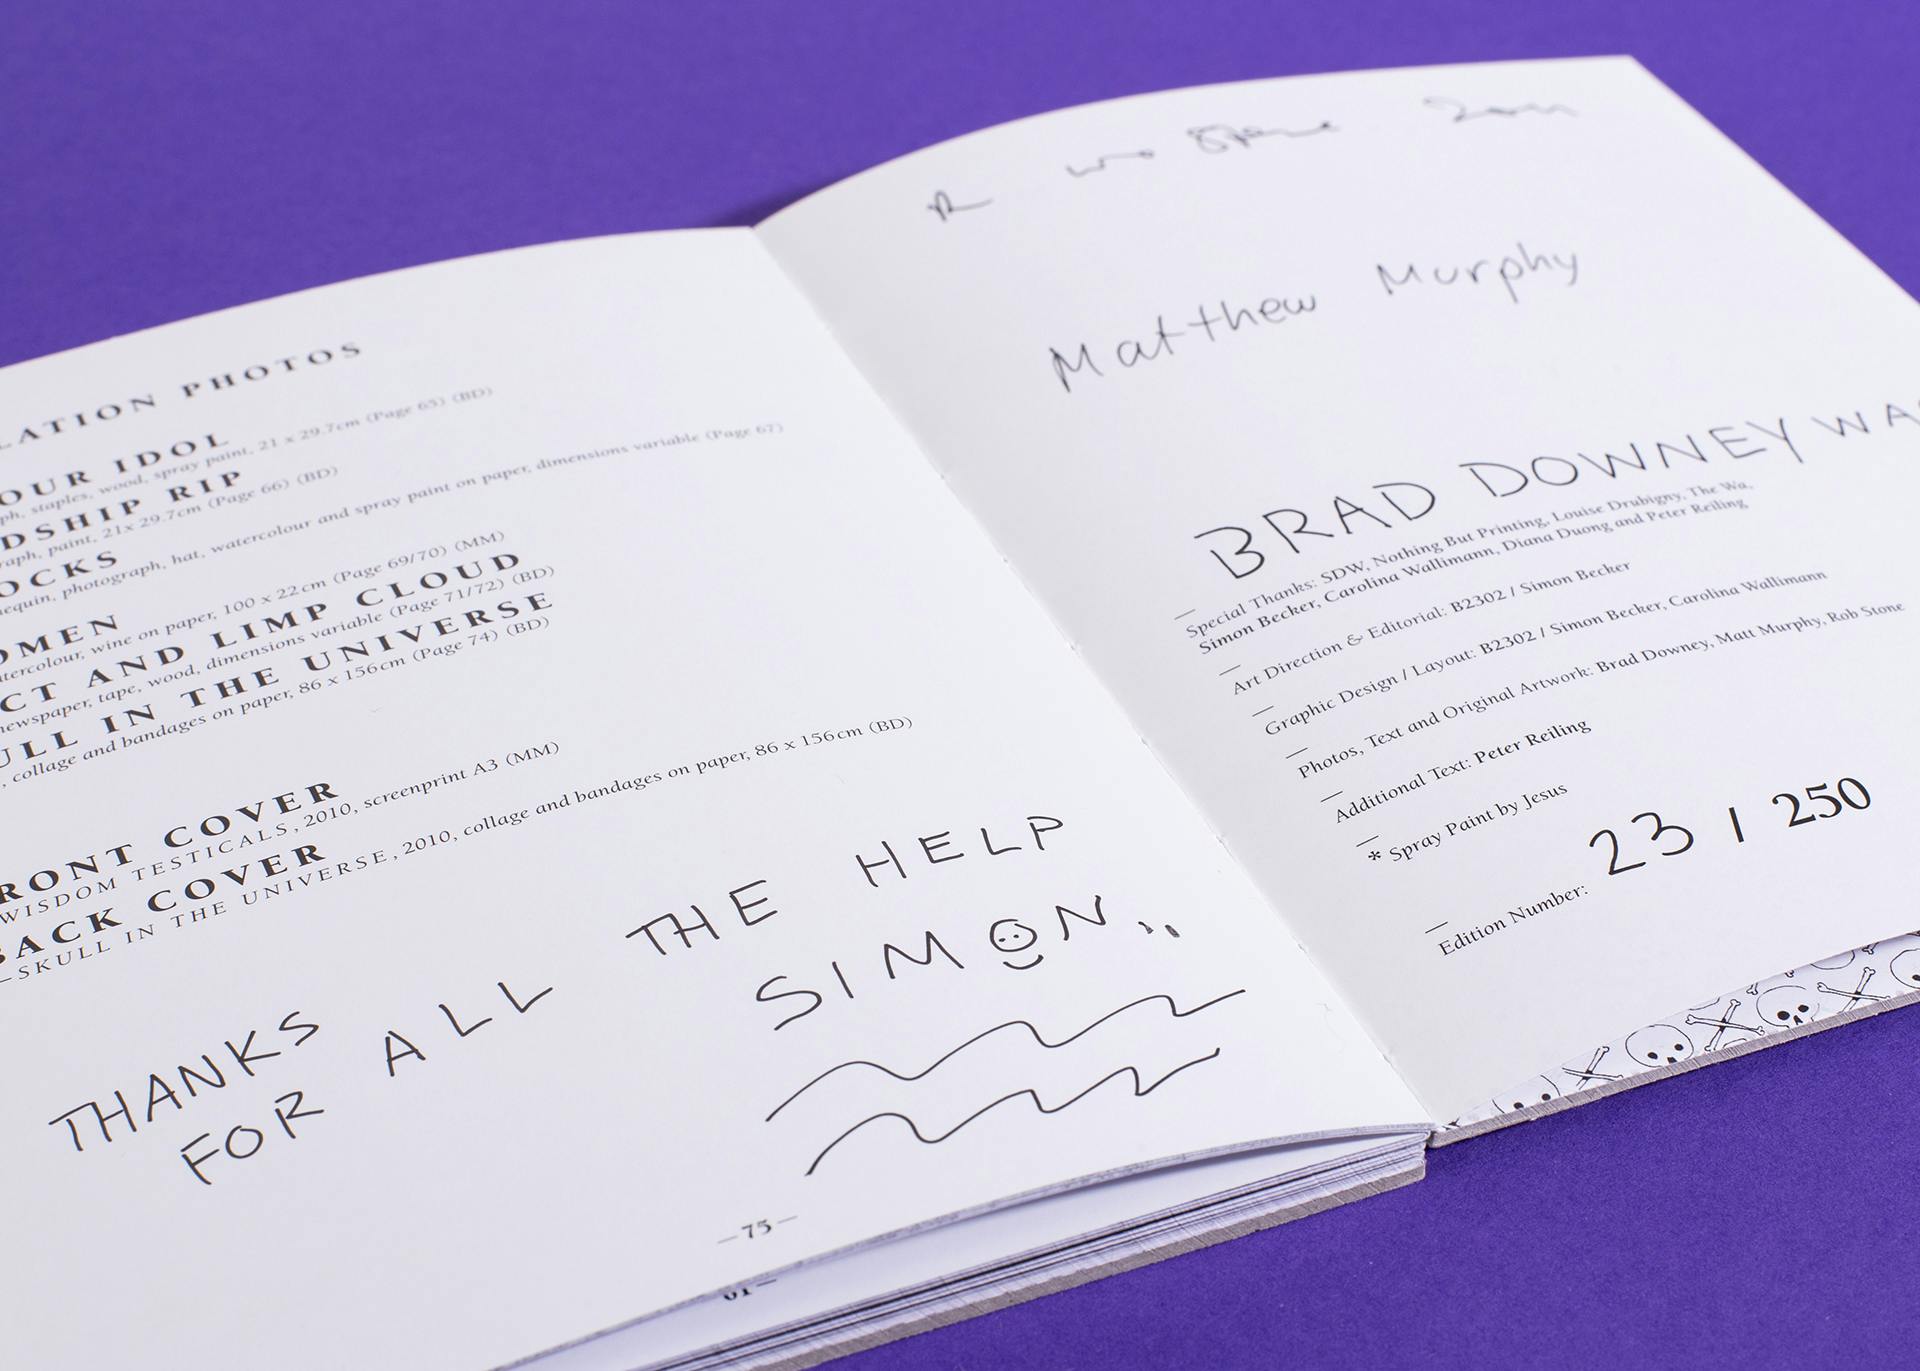 LATION PHOTOS
OUR IDOL
ph, staples, wood, spray paint, 21 x 29.7cm (Page 65) (BD)
DSHIP RIP
raph, paint, 21x 29.7cm (Page 66) (BD)
OCKS
equin, photograph, hat, watercolour and spray paint on paper, dimensions variable (Page 67)
OMEN
tercolour, wine on paper, 100 x 22cm (Page 69/70) (MM)
CT AND LIMP CLOUD
newspaper, tape, wood, dimensions variable (Page 71/72) (BD)
ULL IN THE UNIVERSE
, collage and bandages on paper, 86 x 156cm (Page 74) (BD)
RONT COVER
WISDOM TESTICALS, 2010, screenprint A3 (MM)
BACK COVER
—SKULL IN THE UNIVERSE, 2010, collage and bandages on paper, 86 x 156cm (BD)
THANKS
FOR ALL THE HELP
SIMON,,
—75—
61—
2011
Matthew Murphy
BRAD DOWNEY WA
—
Special Thanks: SDW, Nothing But Printing, Louise Drubigny, The Wa,
Simon Becker, Carolina Wallimann, Diana Duong and Peter Reiling
—
Art Direction & Editorial: B2302 / Simon Becker
—
Graphic Design / Layout: B2302 / Simon Becker, Carolina Wallimann
—
Photos, Text and Original Artwork: Brad Downey, Matt Murphy, Rob Stone
—
Additional Text: Peter Reiling
—
* Spray Paint by Jesus
—
Edition Number: 23 / 250